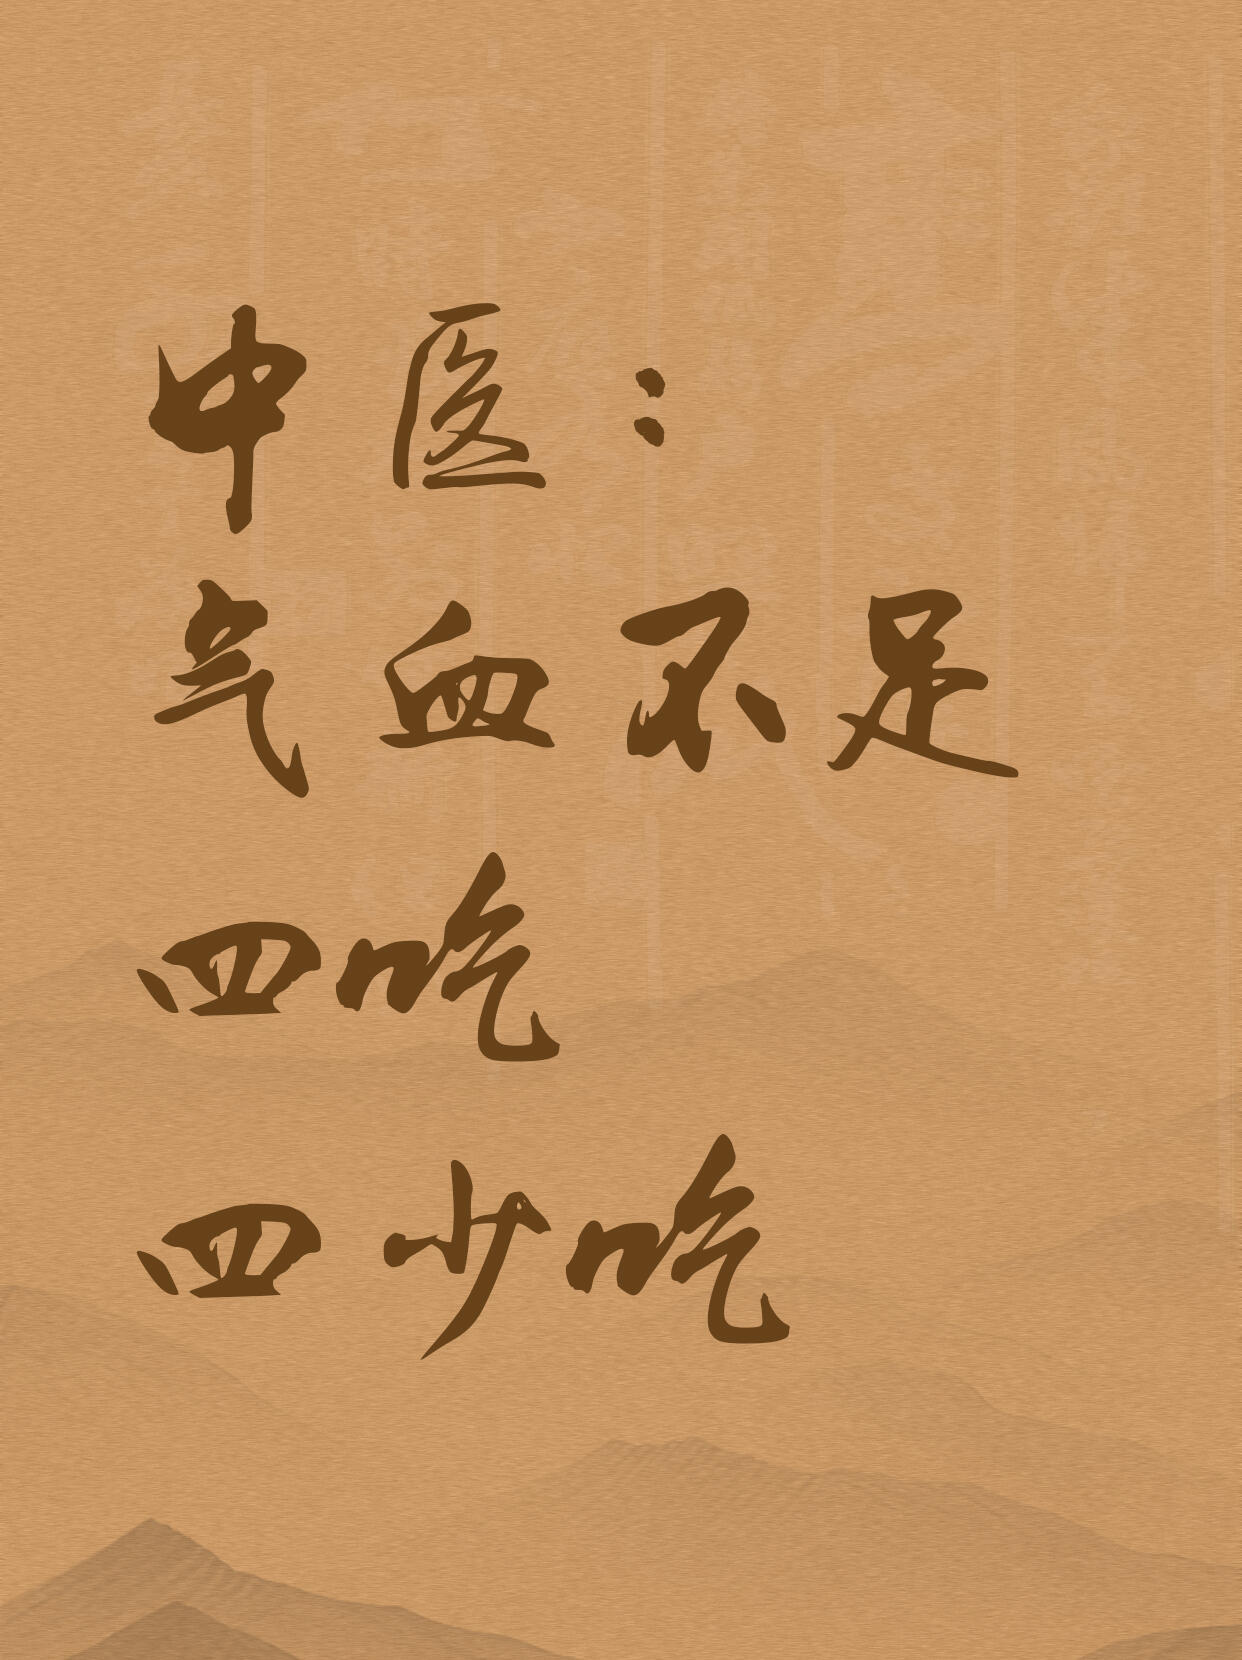 中医：
气血不足
四吃
四少吃